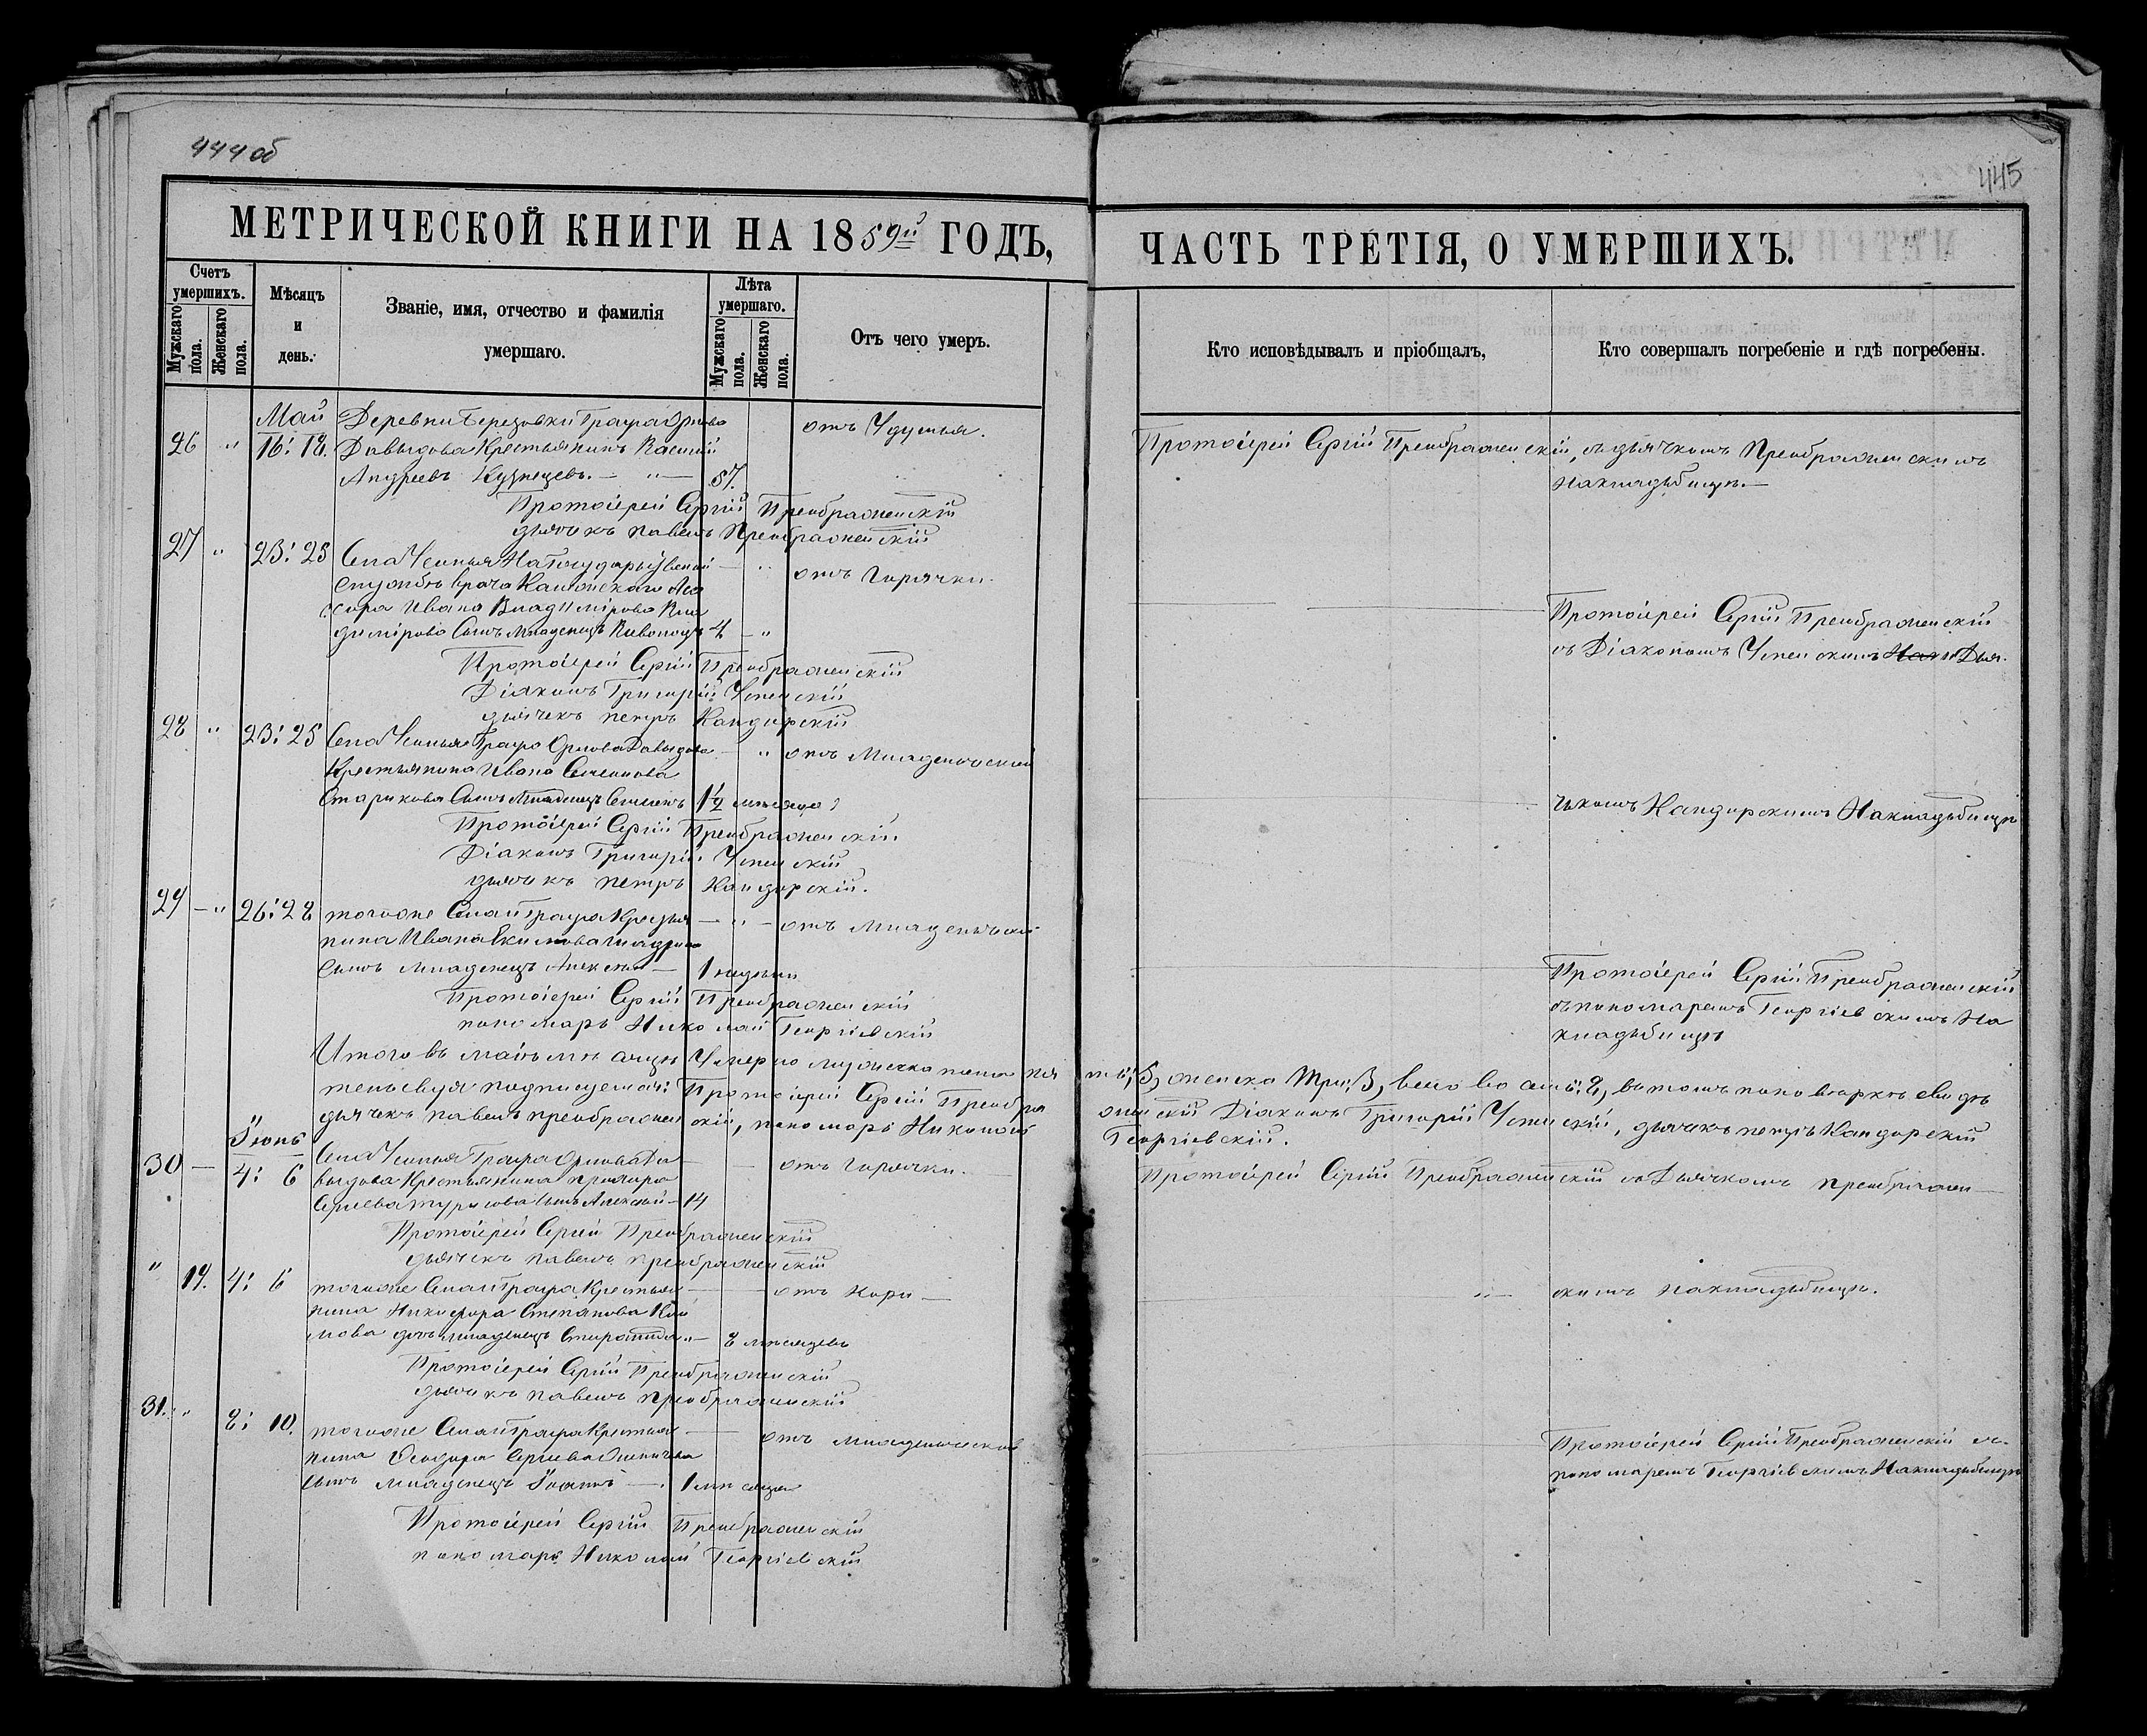 444 об
445
МЕТРИЧЕСКОЙ КНИГИ НА 1859й ГОДЪ,
ЧАСТЬ ТРЕТІЯ, О УМЕРШИХЪ.
Счетъ умершихъ.
Мужскаго пола.
Женскаго пола.
Мѣсяцъ и день.
Званіе, имя, отчество и фамилія умершаго.
Лѣта умершаго.
Мужскаго пола.
Женскаго пола.
Отъ чего умеръ.
Кто исповѣдывалъ и пріобщалъ,
Кто совершалъ погребеніе и гдѣ погребены.
Май Деревни Березовки Графа Орлова отъ Удушья.
26 " 16: 18. Давыдова Крестьянинъ Василій
Андреевъ Кузнецевъ. — " — 57.
Протоіерей Сергій Преображенскій, съ дьячкомъ Преображенскимъ
на кладбищѣ. —
Протоіерей Сергій Преображенскій
дьячекъ Павелъ Преображенскій
27 " 23: 25 Села Усолья На Государственной — " отъ Горячки.
Службѣ врача
Ивана Владимірова Вла
димірова Сынъ Младенецъ 4 — "
Протоіерей Сергій Преображенскій
съ Діакономъ Успенскимъ и Дья-
Протоіерей Сергій Преображенскій
Діаконъ Григорій Успенскій
дьячекъ Петръ Кандорскій
28 " 23: 25 Села Усолья Графа Орлова Давыдова — " отъ Младенческой
Крестьянина Ивана Семенова
Старикова Сынъ Младенецъ Семенъ 1½ мѣсяца
чкомъ Кандорскимъ На кладбищѣ
Протоіерей Сергій Преображенскій
Діаконъ Григорій Успенскій
дьячекъ Петръ Кандорскій.
29 — " 26: 28 тогоже Села и Графа Крестья — " — отъ Младенческой
нина Ивана Екимова
Сынъ младенецъ Алексѣй — 1 недѣли
Протоіерей Сергій Преображенскій
съ пономаремъ Георгіевскимъ На
кладбищѣ
Протоіерей Сергій Преображенскій
пономарь Николай Георгіевскій
Итого въ маѣ мѣсяцѣ Умерло мужеска пола пя ть: 5, женска три: 3, всего восемь: 8, въ томъ
тельствуя подписуемся: Протоіерей Сергій Преобра женскій Діаконъ Григорій Успенскій, дьячекъ Петръ Кандорскій
дьячекъ Павелъ Преображенскій, пономарь Николай Георгіевскій.
Іюнь
30 — 4: 6 Села Усолья Графа Орлова Да — отъ горячки.
выдова Крестьянина
Сынъ Алексѣй — 14
Протоіерей Сергій Преображенскій съ Дьячкомъ Преображен —
Протоіерей Сергій Преображенскій
дьячекъ Павелъ Преображенскій
" 19. 4: 6 тогоже Села и Графа Крестья — отъ Кори —
нина Никифора Степанова Кли
мова дочь младенецъ — 8 мѣсяцевъ
скимъ на кладбищѣ.
Протоіерей Сергій Преображенскій
дьячекъ Павелъ Преображенскій
31. " 8: 10. тогоже Села и Графа Крестья — отъ младенческой
нина Ѳеодора Сергѣева
сынъ младенецъ — 1 мѣсяца
Протоіерей Сергій Преображенскій съ
пономаремъ Георгіевскимъ На кладбищѣ
Протоіерей Сергій Преображенскій
пономарь Николай Георгіевскій